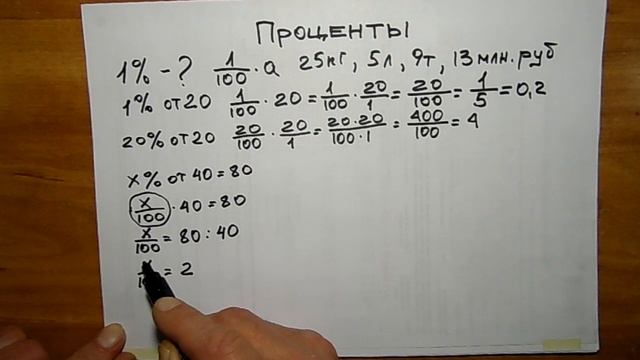 Проценты
1% - ? 1/100 · a 25кг, 5л, 9т, 13 млн. руб
1% от 20 1/100 · 20 = 1/100 · 20/1 = 20/100 = 1/5 = 0,2
20% от 20 20/100 · 20/1 = 20·20/100·1 = 400/100 = 4
x% от 40 = 80
x/100 · 40 = 80
x/100 = 80 : 40
= 2